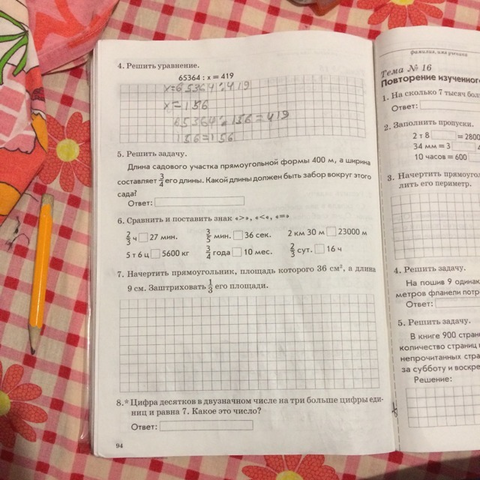 4. Решить уравнение.
65364 : x = 419
x=65364:419
x=156
65364:156=419
156=156
5. Решить задачу.
Длина садового участка прямоугольной формы 400 м, а ширина
составляет 3/4 его длины. Какой длины должен быть забор вокруг этого
сада?
Ответ:
6. Сравнить и поставить знак «>», «<», «=»
2/3 ч 27 мин. 3/5 мин. 36 сек. 2 км 30 м 23000 м
5 т 6 ц 5600 кг 3/4 года 10 мес. 2/3 сут. 16 ч
7. Начертить прямоугольник, площадь которого 36 см², а длина
9 см. Заштриховать 1/3 его площади.
8.* Цифра десятков в двузначном числе на три больше цифры еди-
ниц и равна 7. Какое это число?
Ответ:
94
фамилия, имя ученика
Тема № 16
Повторение изученного
1. На сколько 7 тысяч бол
Ответ:
2. Заполнить пропуски.
2 т 8 = 2800
34 мм = 3
10 часов = 600
3. Начертить прямоугол
лить его периметр.
4. Решить задачу.
На пошив 9 одинак
метров фланели потр
5. Решить задачу.
В книге 900 стран
количество страниц
непрочитанных стра
за субботу и воскре
Решение: